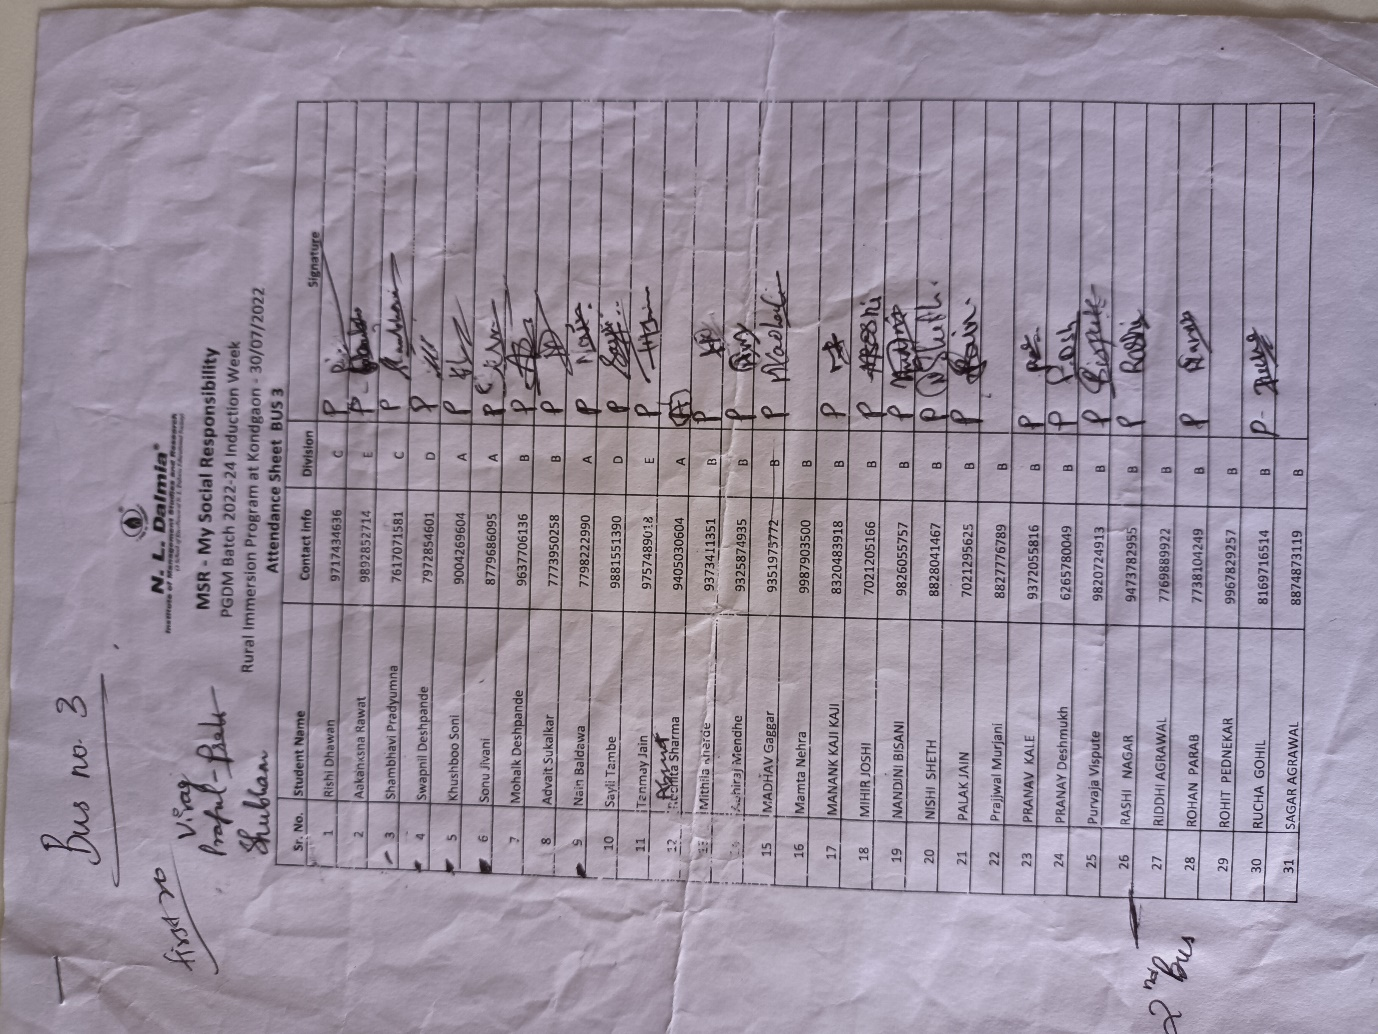 Bus no. 3
first 20
Virag
Praful - Patil
Shubham
N. L. Dalmia
Institute of Management Studies and Research
MSR - My Social Responsibility
PGDM Batch 2022-24 Induction Week
Rural Immersion Program at Kondgaon - 30/07/2022
Attendance Sheet BUS 3
Sr. No. Student Name Contact Info Division Signature
1 Rishi Dhawan 9717434636 C P
2 Aakanksna Rawat 9892852714 E P
3 Shambhavi Pradyumna 7617071581 C P Shambhavi
4 Swapnil Deshpande 7972854601 D P
5 Khushboo Soni 9004269604 A P
6 Sonu Jivani 8779686095 A P
7 Mohaik Deshpande 9637706136 B P
8 Advait Sukalkar 7773950258 B P
9 Nain Baldawa 7798222990 A P Nain
10 Sayli Tambe 9881551390 D P
11 Tanmay Jain 9757489018 E P
12 Sharma 9405030604 A A
13 Mithila Sherde 9373411351 B P
14 Abhiraj Mendhe 9325874935 B P
15 MADHAV Gaggar 9351975772 B P Madhav
16 Mamta Nehra 9987903500 B
17 MANANK KAJI KAJI 8320483918 B P
18 MIHIR JOSHI 7021205166 B P
19 NANDINI BISANI 9826055757 B P
20 NISHI SHETH 8828041467 B P NSheth.
21 PALAK JAIN 7021295625 B P Jain.
22 Prajjwal Murjani 8827776789 B
23 PRANAV KALE 9372055816 B P
24 PRANAY Deshmukh 6265780049 B P
25 Purvaja Vispute 9820724913 B P
26 RASHI NAGAR 9473782955 B P Rashi
27 RIDDHI AGRAWAL 7769889922 B
28 ROHAN PARAB 7738104249 B P
29 ROHIT PEDNEKAR 9967829257 B
30 RUCHA GOHIL 8169716514 B P-
31 SAGAR AGRAWAL 8874873119 B
2nd Bus